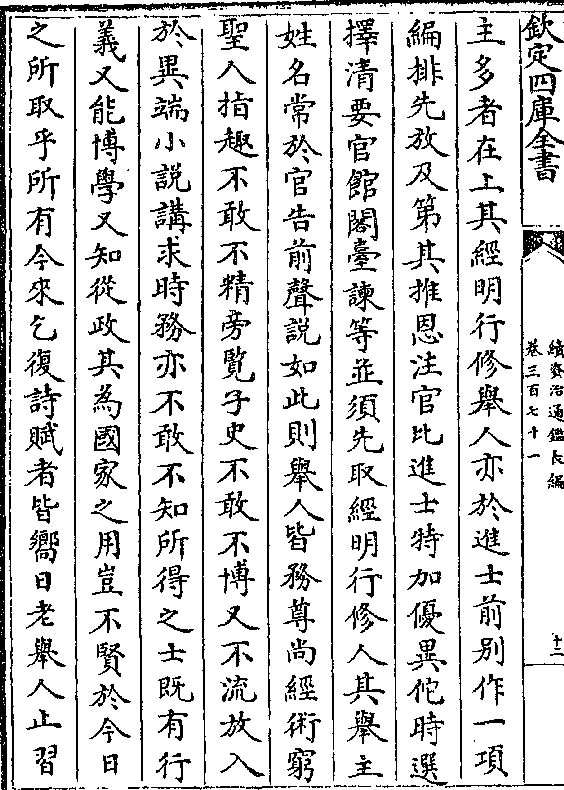 欽定四庫全書
續資治通鑑長編
卷三百七十一
十二
主多者在上其經明行修舉人亦於進士前別作一項
編排先放及第其推恩注官比進士特加優異佗時選
擇清要官館閣臺諫等並須先取經明行修人其舉主
姓名常於官告前聲說如此則舉人皆務尊尚經術窮
聖人指趣不敢不精旁覽子史不敢不博又不流放入
於異端小說講求時務亦不敢不知所得之士既有行
義又能博學又知從政其為國家之用豈不賢於今日
之所取乎所有今來乞復詩賦者皆嚮日老舉人止習